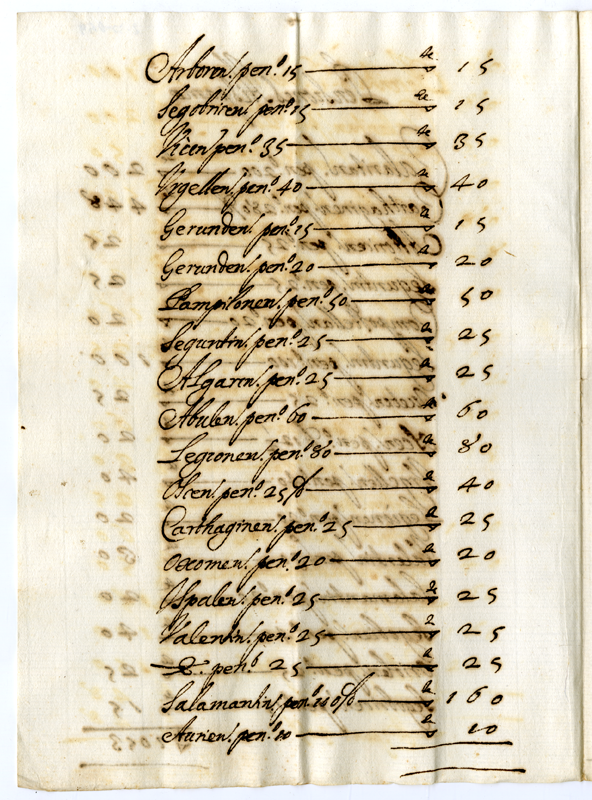 Arboren. pen.º 15 — a 15
Segobricen. pen.º 15 — a 15
Vicen. pen.º 35 — a 35
Vrgellen. pen.º 40 — a 40
Gerunden. pen.º 15 — a 15
Gerunden. pen.º 20 — a 20
Pampilonen. pen.º 50 — a 50
Seguntin. pen.º 25 — a 25
Algaren. pen.º 25 — a 25
Abulen. pen.º 60 — a 60
Legionen. pen.º 80 — a 80
Oscen. pen.º 25 — a 40
Carthaginen. pen.º 25 — a 25
Oxomen. pen.º 20 — a 20
Ispalen. pen.º 25 — a 25
Valentin. pen.º 25 — a 25
pen.º 25 — a 25
Salamantin. pen.º — a 160
Aurien. pen.º 10 — a 10